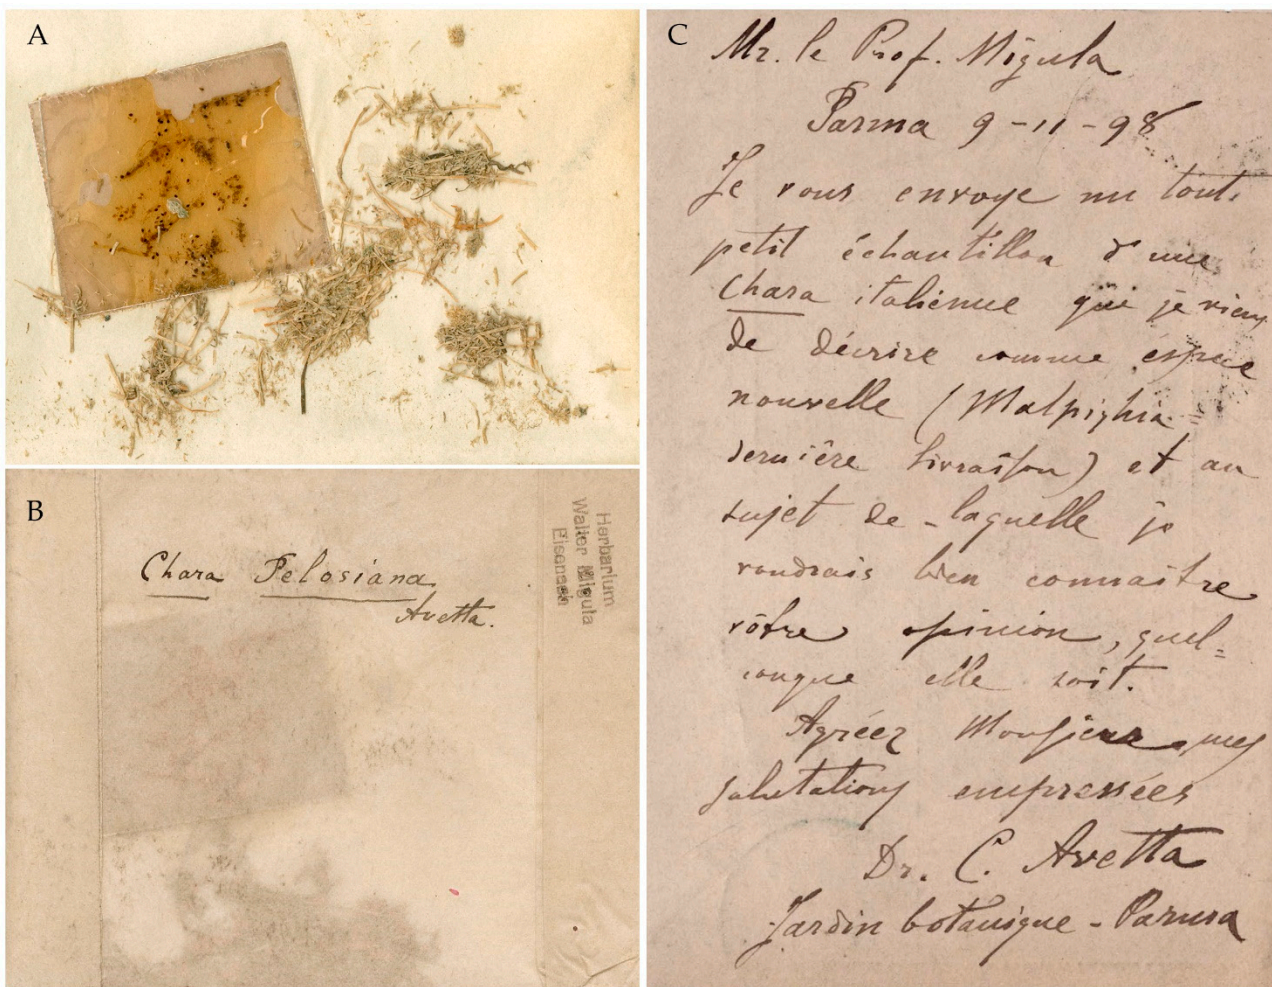 A
B
Chara Pelosiana
Avetta.
Herbarium
Walter Migula
Eisenach
C
Mr. le Prof. Migula
Parma 9-11-98
Je vous envoye un tout
petit échantillon d'une
Chara italienne que je viens
de décrire comme espèce
nouvelle (Malpighia
dernière livraison) et au
sujet de laquelle je
voudrais bien connaître
vôtre opinion, quel=
conque elle soit.
Agréez Monsieur mes
salutations empressées
Dr. C. Avetta
Jardin botanique - Parma